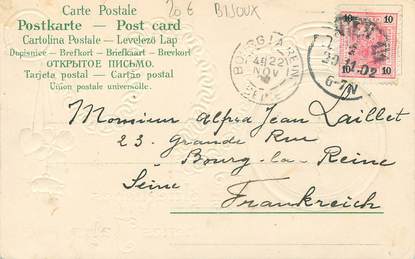 Carte Postale
20 € BIJOUX
Postkarte — Post card
Cartolina Postale — Levelező Lap
Dopisnice — Brefkort — Briefkaart — Brevkort
ОТКРЫТОЕ ПИСЬМО.
Tarjeta postal — Cartão postal
Union postale universelle.
BOURG LA REINE
22
NOV
SEINE
10 10
10 10
6-7N
Monsieur Alfred Jean Laillet
23. Grande Rue
Bourg-la-Reine
Seine
Frankreich